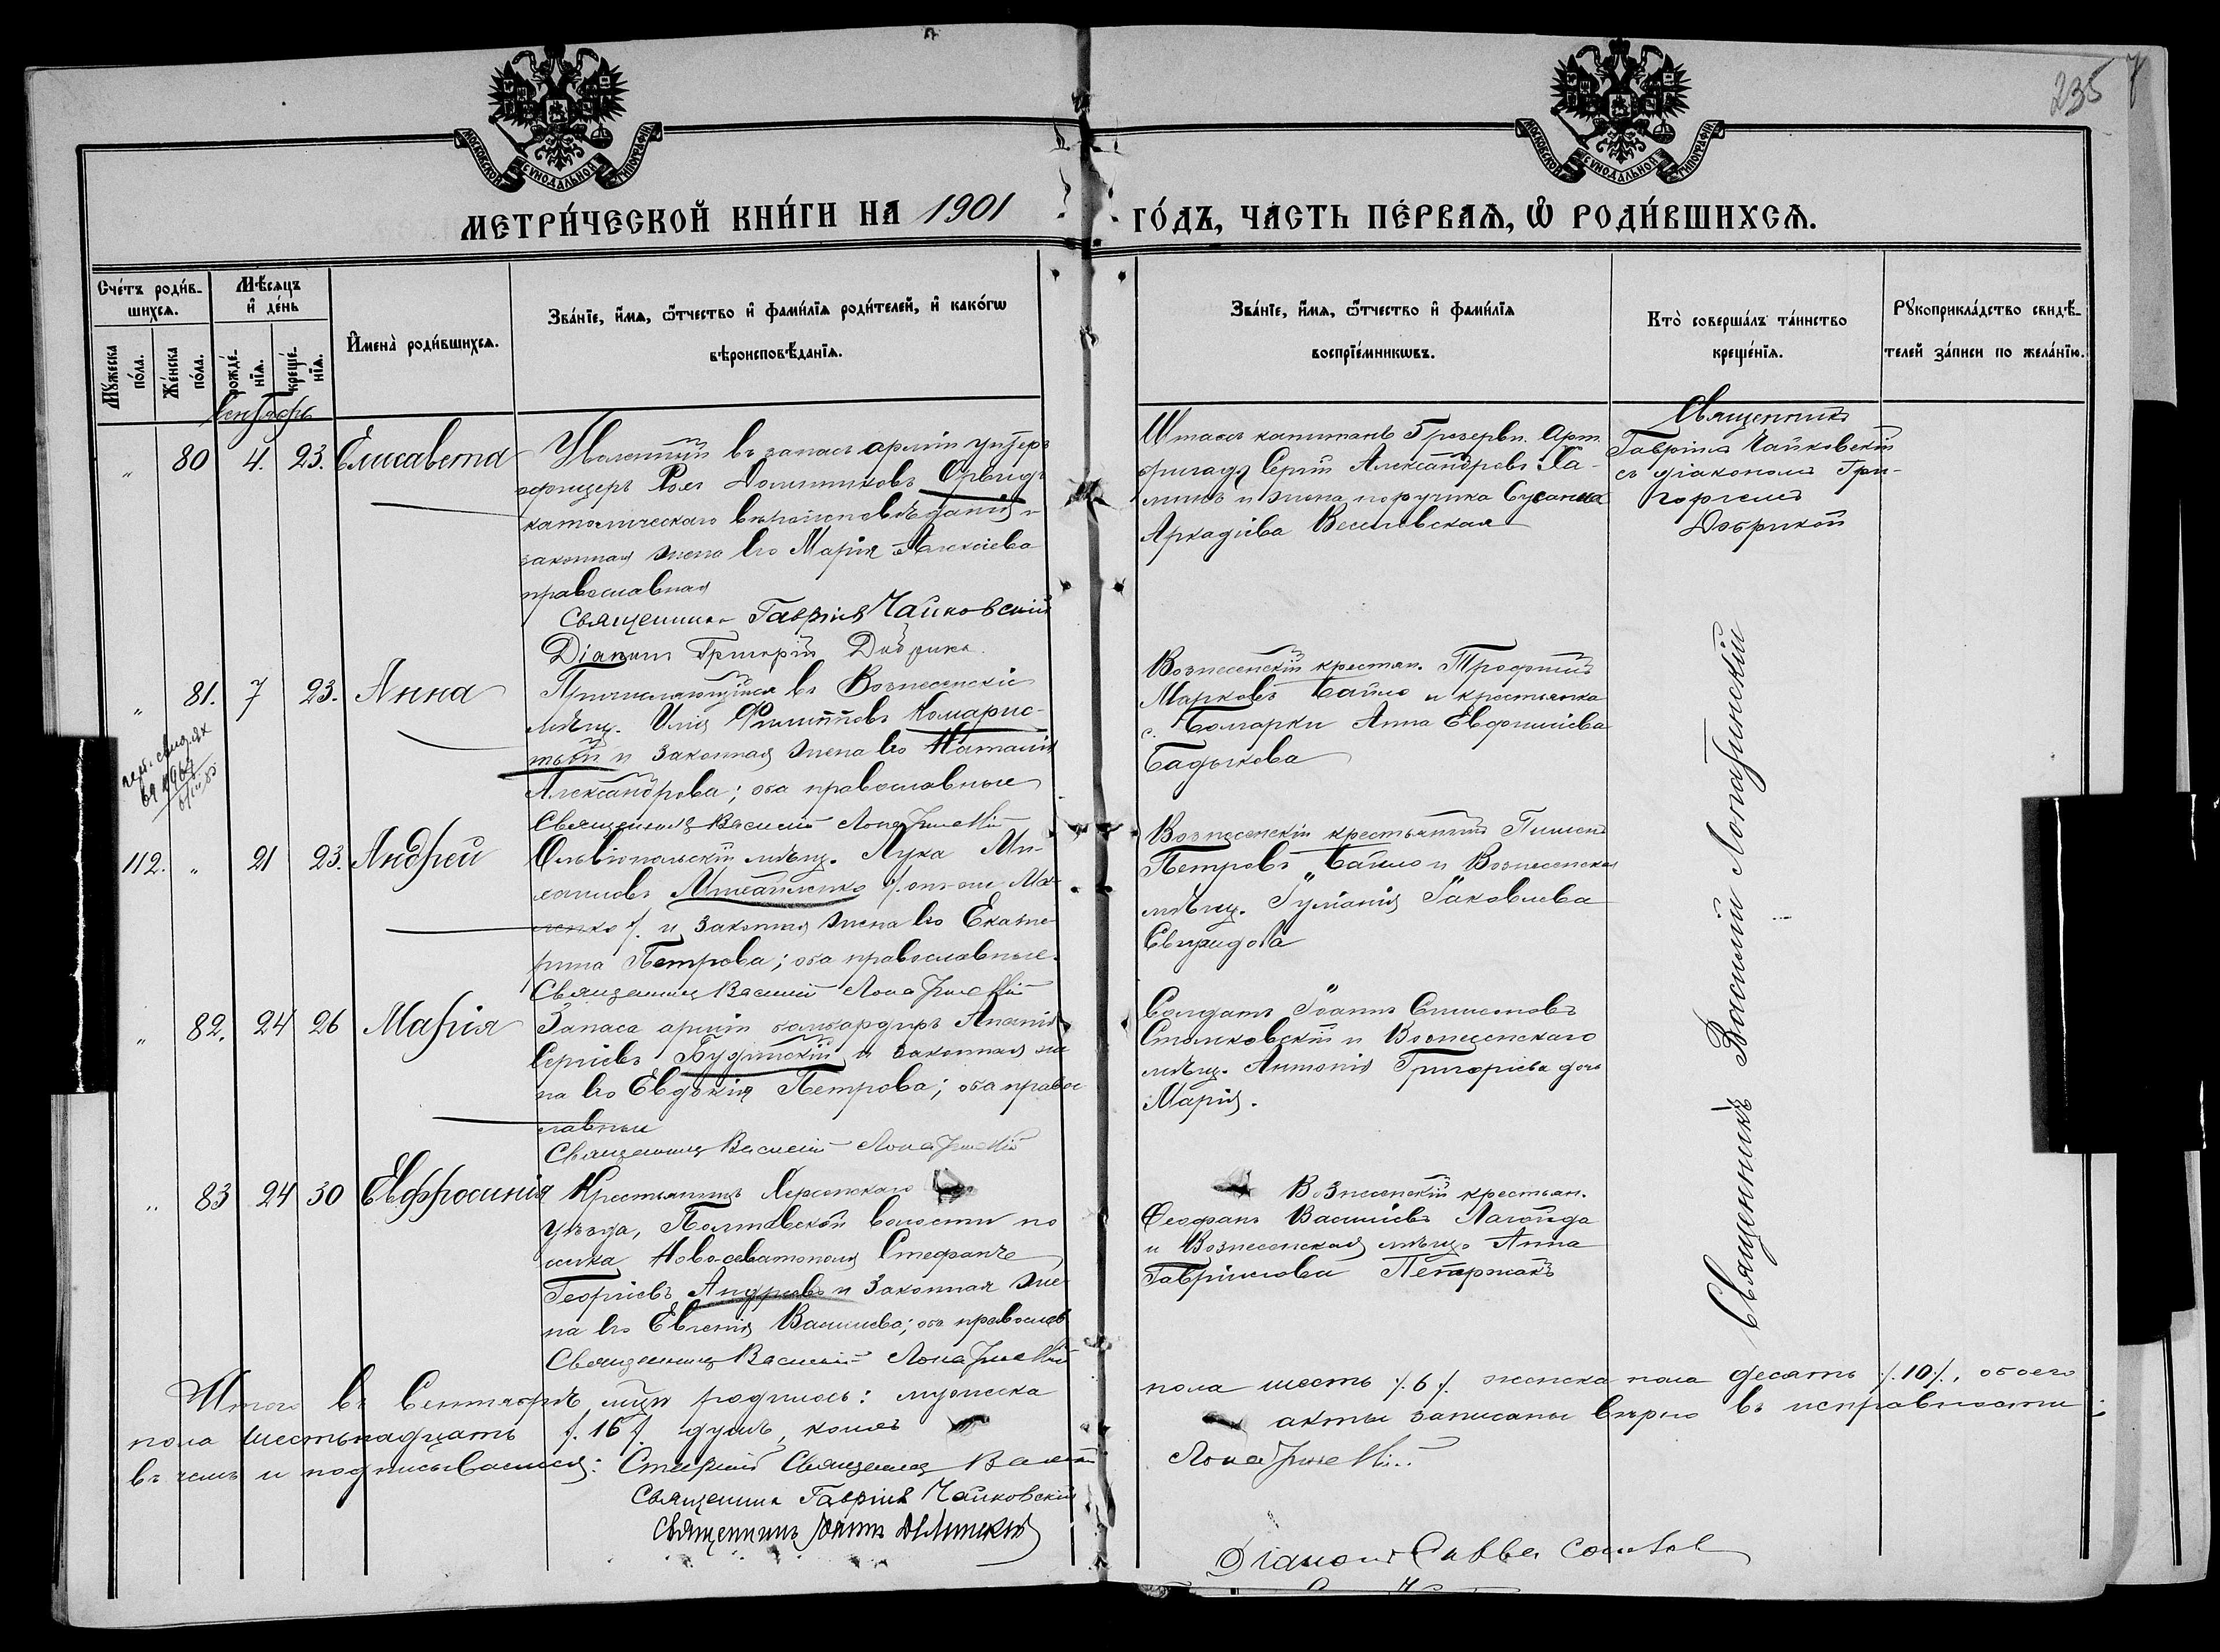 235
МОСКОВСКОЙ СѴНОДАЛЬНОЙ ТИПОГРАФІИ
МОСКОВСКОЙ СѴНОДАЛЬНОЙ ТИПОГРАФІИ
МЕТРИ́ЧЕСКОЙ КНИ́ГИ НА 1901
ГО́ДЪ, ЧА́СТЬ ПЕ́РВАѦ, Ѽ РОДИ́ВШИХСѦ.
Сче́тъ роди́в-
шихсѧ.
Мꙋ́жеска по́ла.
Же́нска по́ла.
Мѣ́сѧцъ
и҆ де́нь
рожде́-
нїѧ.
креще́-
нїѧ.
И҆мена̀ роди́вшихсѧ.
Зва́нїе, и҆́мѧ, ѻ҆́тчество и҆ фами́лїѧ роди́телей, и҆ како́гѡ
вѣроисповѣ́данїѧ.
Зва́нїе, и҆́мѧ, ѻ҆́тчество и҆ фами́лїѧ
воспрїе́мникѡвъ.
Кто̀ соверша́лъ та́инство
креще́нїѧ.
Рꙋкоприкла́дство свидѣ́-
телей за́писи по жела́нїю.
Сентябрь
„ 80 4. 23. Елисавета
Уволенный въ запасъ арміи унтеръ
офицеръ Доминиковъ
католическаго вѣроисповѣданія и
законная жена его Марія Алексіева
православная
Священникъ Гавріилъ Чайковскій
Діаконъ Григорій Добрика
Штабсъ капитанъ 5 резервн. Арт.
бригады Сергій Александровъ Ха-
линъ и жена поручика Сусанна
Аркадіева
Священникъ
Гавріилъ Чайковскій
съ діакономъ Гри-
горіемъ
Добрикой
„ 81. 7 23. Анна
Причисляющійся въ Вознесенскіе
мѣщ. Илія Филипповъ Комарис-
тый и законная жена его Наталія
Александрова; оба православные
Священникъ Василій Лопатинскій
Вознесенскій крестьян. Трофимъ
Марковъ Байло и крестьянка
с. Болгарки Анна Евфиміева
Бадикова
112. „ 21 23. Андрей
Ольвіопольскій мѣщ. Лука Ми-
хаиловъ Михайленко
и законная жена его Екате-
рина Петрова; оба православные.
Священникъ Василій Лопатинскій
Вознесенскій крестьянинъ Пименъ
Петровъ Байло и Вознесенская
мѣщ. Іуліанія Іаковлева
Свиридова
„ 82. 24 26 Марія
Запаса арміи бомбардиръ Ананія
Сергіевъ и законная же-
на его Евдокія Петрова; оба право-
славные
Священникъ Василій Лопатинскій
Солдатъ Іоаннъ Симеоновъ
Станковскій и Вознесенскаго
мѣщ. Антонія Григоріева дочь
Марія.
„ 83 24 30 Евфросинія
Крестьянинъ Херсонскаго
уѣзда, Полтавской волости по-
селка Новосевастополя Стефанъ
Георгіевъ и законная же-
на его Евгенія Василіева; оба православ
Священникъ Василій Лопатинскій
Вознесенскій крестьян.
Феофанъ Василіевъ Лагойда
и Вознесенская мѣщ. Анна
Гавріилова
Священникъ Василій Лопатинскій
Итого въ Сентябрѣ мцѣ родилось: мужеска
пола шесть /.6./ женска пола десять /.10./, обоего
пола шестьнадцать /.16./ душъ, коихъ
акты записаны вѣрно въ исправности
въ чемъ и подписываемся: Старшій Священникъ Василій
Лопатинскій.
Священникъ Гавріилъ Чайковскій
Священникъ Іоаннъ
Діаконъ Савва